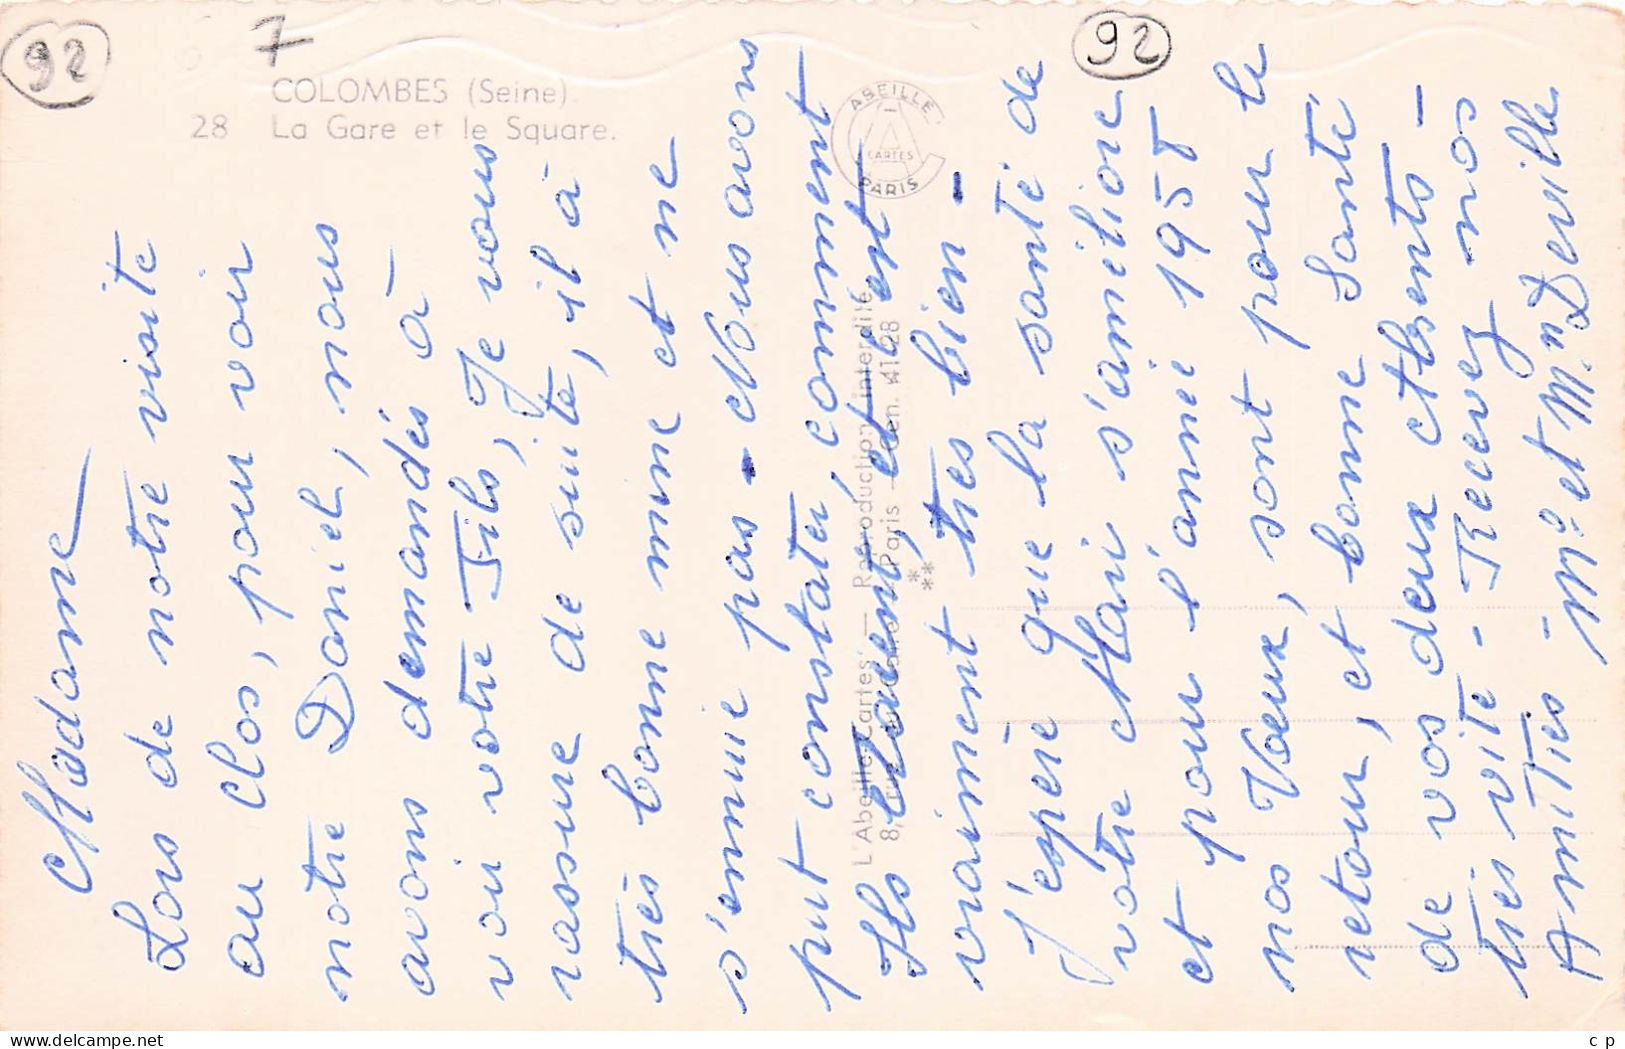 92
7
92
COLOMBES (Seine).
28 La Gare et le Square.
ABEILLE
CARTES
PARIS
L'Abeille-Cartes. — Reproduction interdite.
Madame
Lors de notre visite
au Clos, pour voir
notre Daniel, nous
avons demandés à
voir votre Fils, Je vous
rassure de suite, il à
très bonne mine et ne
s'ennuie pas - Nous avons
put constater, comment
Ils étaient, et c'est
vraiment très bien -
J'espère que la santé de
votre Mari s'améliore
et pour l'année 1958
nos Vœux, sont pour le
retour, et bonne Santé
de vos deux Absents -
très vite - Recevez nos
Amitiés - Mr et Mme Deville
delcampe.net
c p